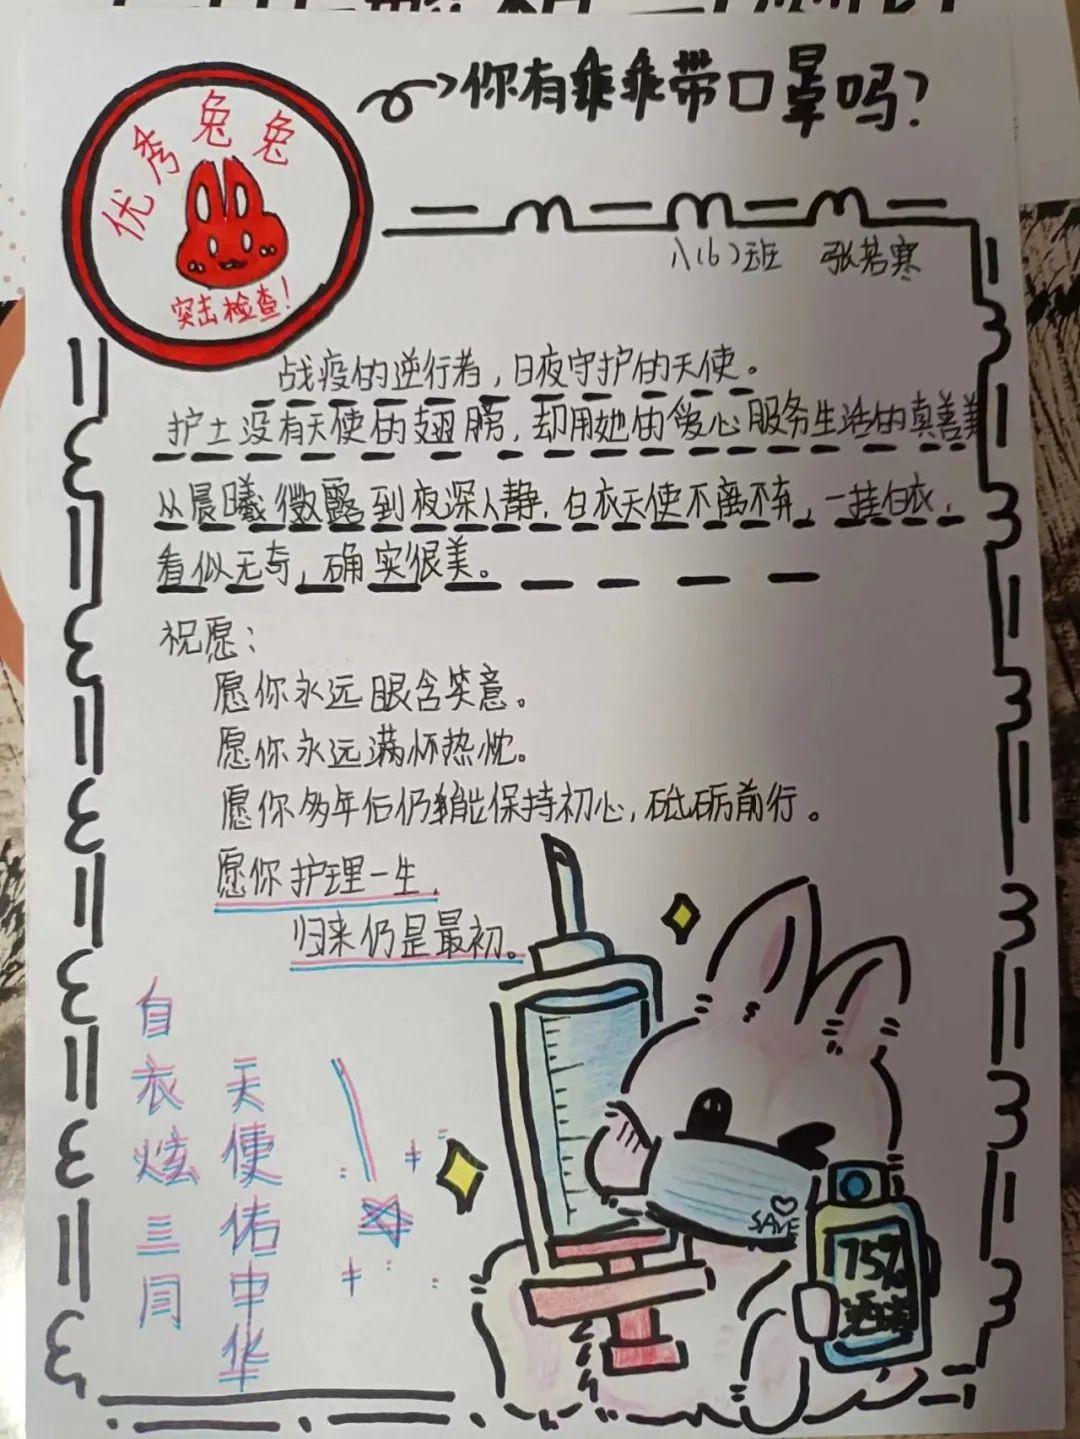 你有乖乖带口罩吗?
优秀兔兔
突击检查!
八(6)班 张若寒
战疫的逆行者,日夜守护的天使。
护士没有天使的翅膀,却用她的爱心服务生活的真善美
从晨曦微露到夜深人静,白衣天使不离不弃,一挂白衣,
看似无奇,确实很美。
祝愿:
愿你永远眼含笑意。
愿你永远满怀热忱。
愿你多年后仍能保持初心,砥砺前行。
愿你护理一生,
归来仍是最初。
白衣炫三月
天使佑中华
SAVE
75%
酒精